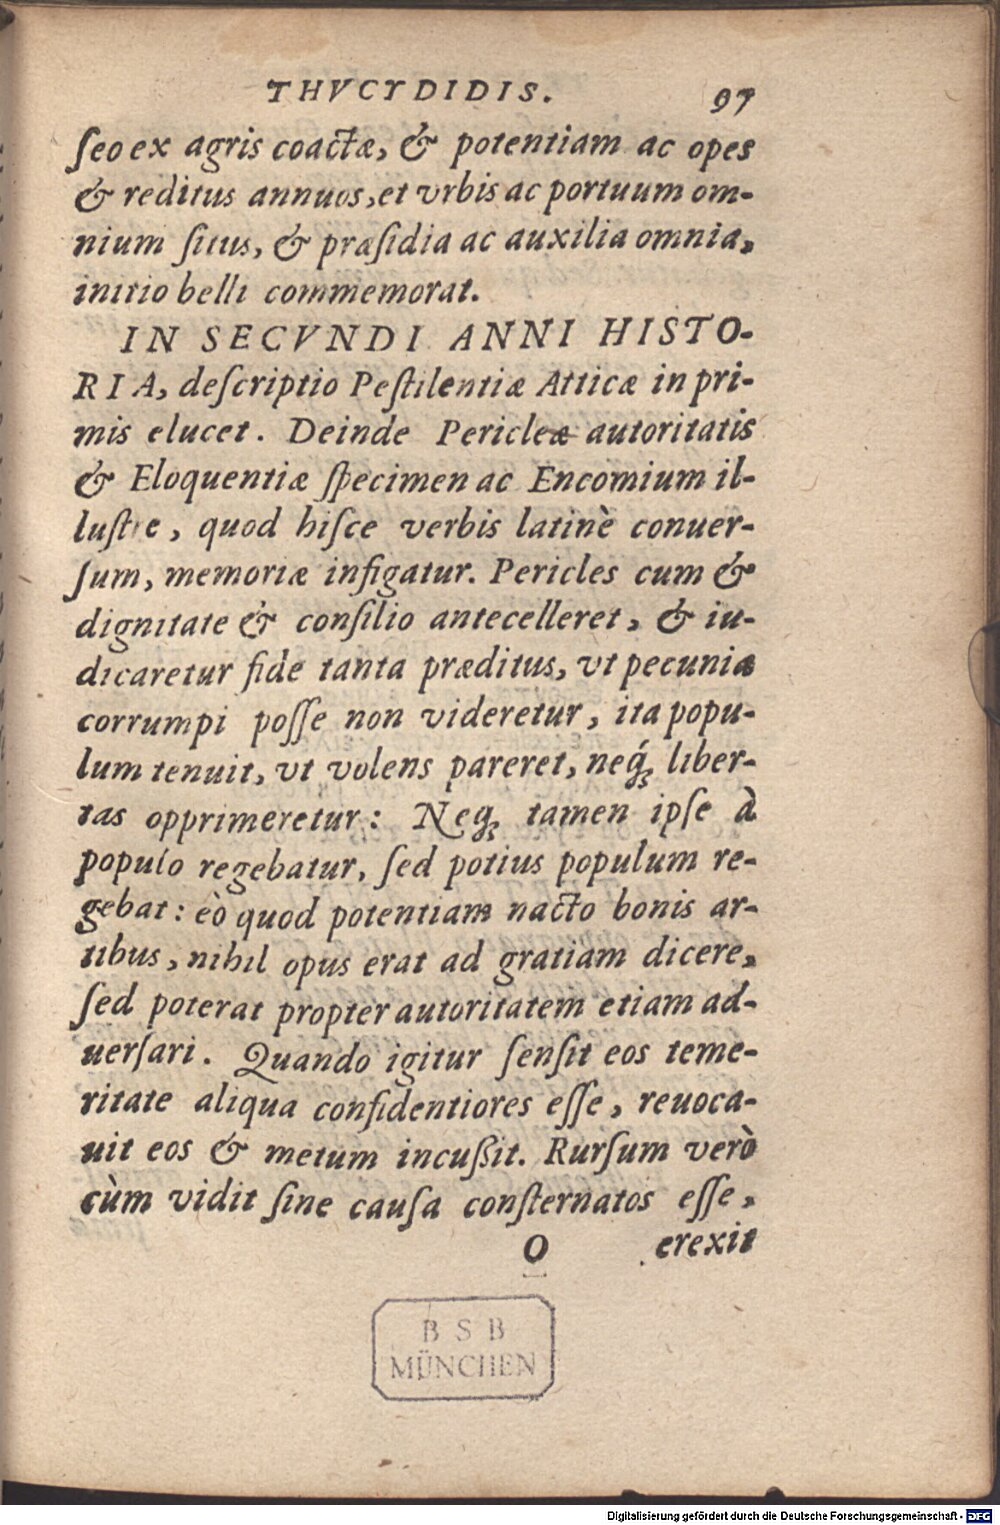 THVCYDIDIS. 97
ſeo ex agris coactæ, & potentiam ac opes
& reditus annuos, et vrbis ac portuum om-
nium ſitus, & præſidia ac auxilia omnia,
initio belli commemorat.
IN SECVNDI ANNI HISTO-
RIA, deſcriptio Peſtilentiæ Atticæ in pri-
mis elucet. Deinde Pericleæ autoritatis
& Eloquentiæ ſpecimen ac Encomium il-
luſtre, quod hiſce verbis latinè conuer-
ſum, memoriæ infigatur. Pericles cum &
dignitate & conſilio antecelleret, & iu-
dicaretur fide tanta præditus, vt pecunia
corrumpi poſſe non videretur, ita popu-
lum tenuit, vt volens pareret, neq́ꝫ liber-
tas opprimeretur: Neqꝫ tamen ipſe à
populo regebatur, ſed potius populum re-
gebat: eò quod potentiam nacto bonis ar-
tibus, nihil opus erat ad gratiam dicere,
ſed poterat propter autoritatem etiam ad-
uerſari. Quando igitur ſenſit eos teme-
ritate aliqua confidentiores eſſe, reuoca-
uit eos & metum incußit. Rurſum verò
cùm vidit ſine cauſa conſternatos eſſe,
O erexit
BSB
MÜNCHEN
Digitalisierung gefördert durch die Deutsche Forschungsgemeinschaft - DFG